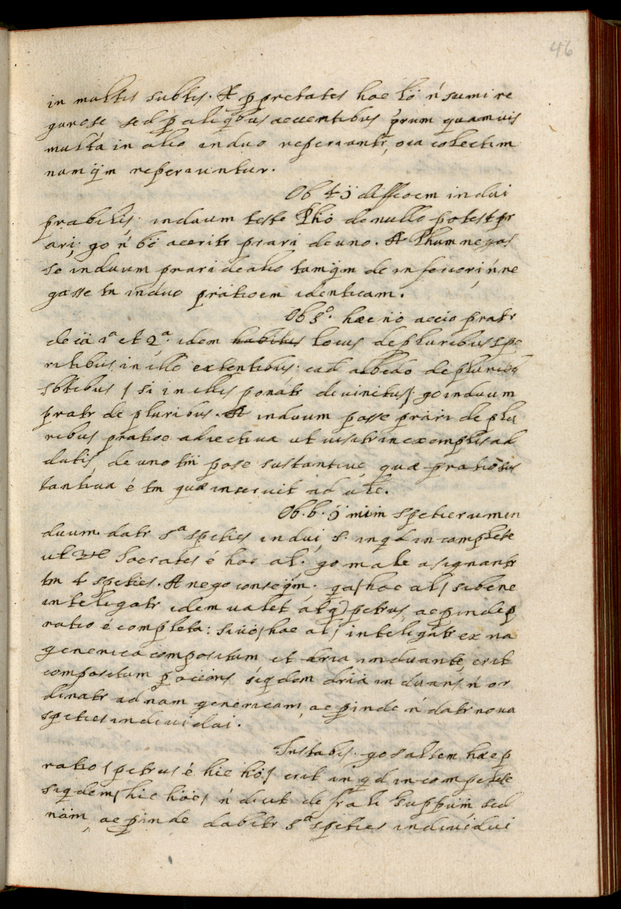 46
in multis subtis. R pprietates hoc lo n sumi re
gorose sed p aliqbus acuentibus prum quamvis
multa in alio induo reperiantr, oia colectim
nunqm reperiuntur.
Ob 4 q deffcoem indui
prabilis: induum teste Pho de nullo potest pr
ari; go n be aceritr prari de uno. R Phum negas
se induum prari de alio tamqm de inferiori n ne
gasse tn induo pratioem identicam.
Ob 5º. hæc no accio pratr
de ia 1ª et 2ª idem locus de pluribus spe
ritibus in illo extentibus: ead albedo de pluribq
sbtibus si in illis ponatr divinitus; go induum
pratr de pluribus. R induum posse prari de plu
ribus pratioe adiectiva ut visitr in exemplis ad
datis, de uno tm pose sustantive, quæ pratio sus
tantiva é tm quæ inservit ad ule.
Ob. 6. q
duum datr 5ª speties indui s. inqd incomplete
ut Socrates é hoc al. go male asignantr
tm 4 speties. R nego conseqm. qa hoc al, si bene
inteligatr idem valet atq petrus, ac pinde p
ratio é completa: sive hoc al, inteligatr ex na
generica compositum et dria induante, erit
compositum p accions, siqdem dria induans n or
dinatr ad nam genericam, ac pinde n datr nova
speties individui.
Instabis. go saltem hæc p
ratio petrus é hic hõ, erit in qd incomplete
siqdem hic hõ, n dicit de frali suppum sed
nam, ac pinde dabitr 5ª speties individui